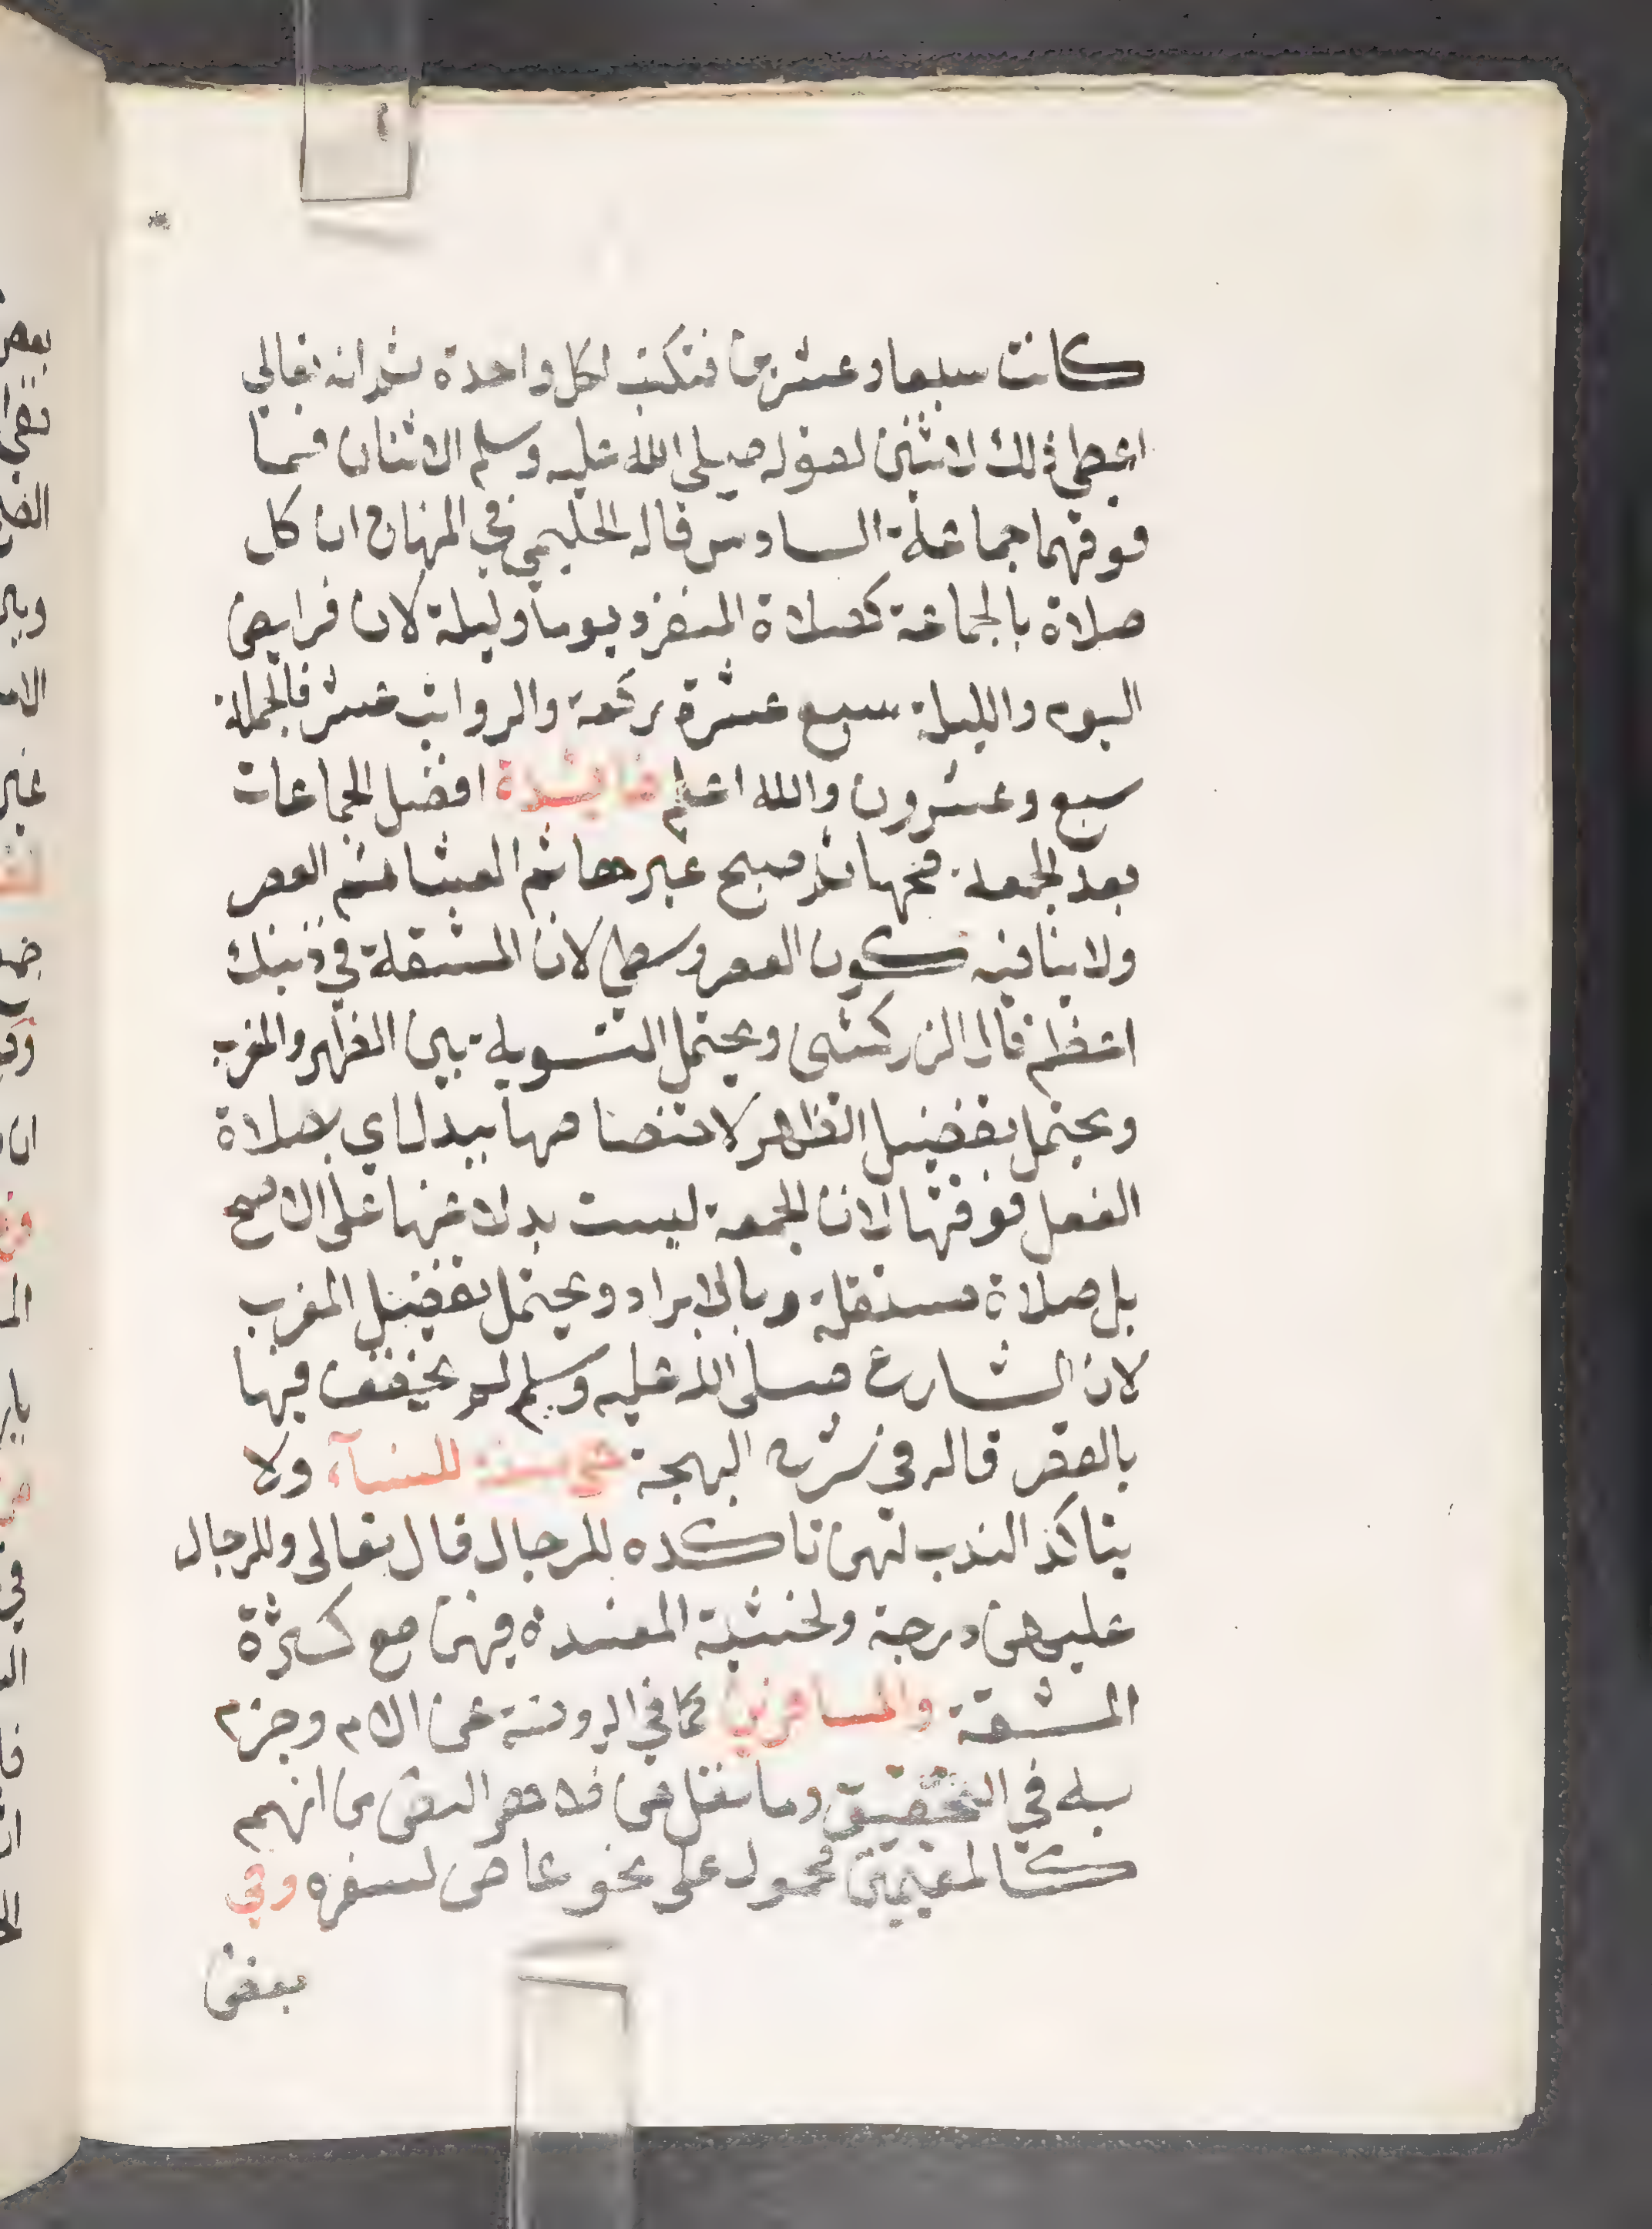 كانت سبعا وعشرين فتكتب لكل واحدة ثم انه تعالى
اعطى ذلك لاثنين لقوله صلى الله عليه وسلم الاثنان فما
فوقهما جماعة السادس قاله الحليمي في المنهاج ان كل
صلاة بالجماعة كصلاة المنفرد يوما وليلة لان فرايض
اليوم والليلة سبع عشرة ركعة والرواتب عشر فالجملة
سبع وعشرون والله اعلم فايدة افضل الجماعات
بعد الجمعة صبحها ثم صبح غيرها ثم العشا ثم العصر
ولا ينافيه كون العصر وسطى لان المشقة في ذينك
اعظم قال الزركشي ويحتمل التسوية بين الظهر والمغرب
ويحتمل تفضيل الظهر لاختصاصها ببدل اي بصلاة
الفعل فوقتها لان الجمعة ليست بدلا عنها على الاصح
بل صلاة مستقلة وبالابراد ويحتمل تفضيل المغرب
لان الشارع صلى الله عليه وسلم لم يخفف فيها
بالقصر قاله في شرح البهجة هي سنة للنسآء ولا
يتاكد الندب لهن تاكده للرجال قال تعالى وللرجال
عليهن درجة ولخشية المفسدة فيهن مع كثرة
المشقة والمسافرين كما في الروضة عن الام وجزم
به في التحقيق وما نقل عن ظاهر النص من انهم
كالمقيمين محمول على نحو عاص لسفره وفي
بعض